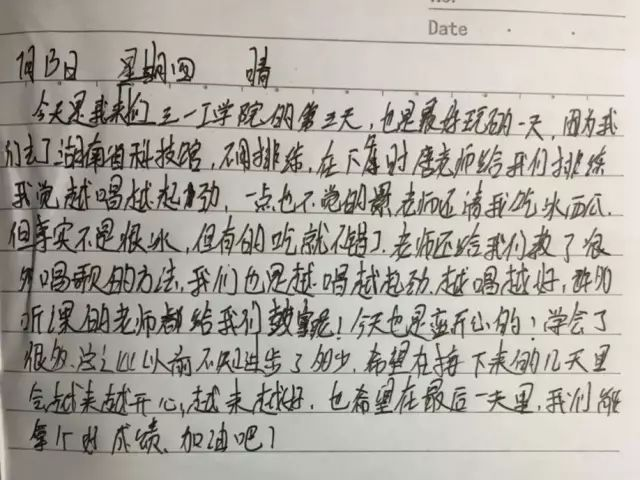 Date
7月13日 星期四 晴
今天是我来们三一工学院的第三天,也是最好玩的一天,因为我
们去了湖南省科技馆,不用排练,在下席时唐老师给我们排练
我觉越唱越起劲,一点也不觉的累老师还请我吃冰西瓜.
但事实不是很冰,但有的吃就不错了.老师还给我们教了很
多唱歌的方法,我们也是越唱越起劲.越唱越好,
听课的老师都给我们鼓掌呢!今天也是蛮开心的!学会了
很多.以前不知进步了多少.希望在接下来的几天里
会越来越开心,越来越好.也希望在最后一天里,我们能
拿个好成绩、加油吧!